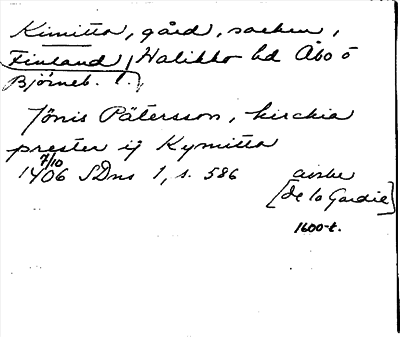 Kimitta, gård, socken,
Finland, Halikko hd Åbo o
Björneb.
Jönis Pätersson, kirchia
prester ij Kymitta
7/10
1406 SDns 1, s. 586 avskr
[de la Gardie]
1600-t.